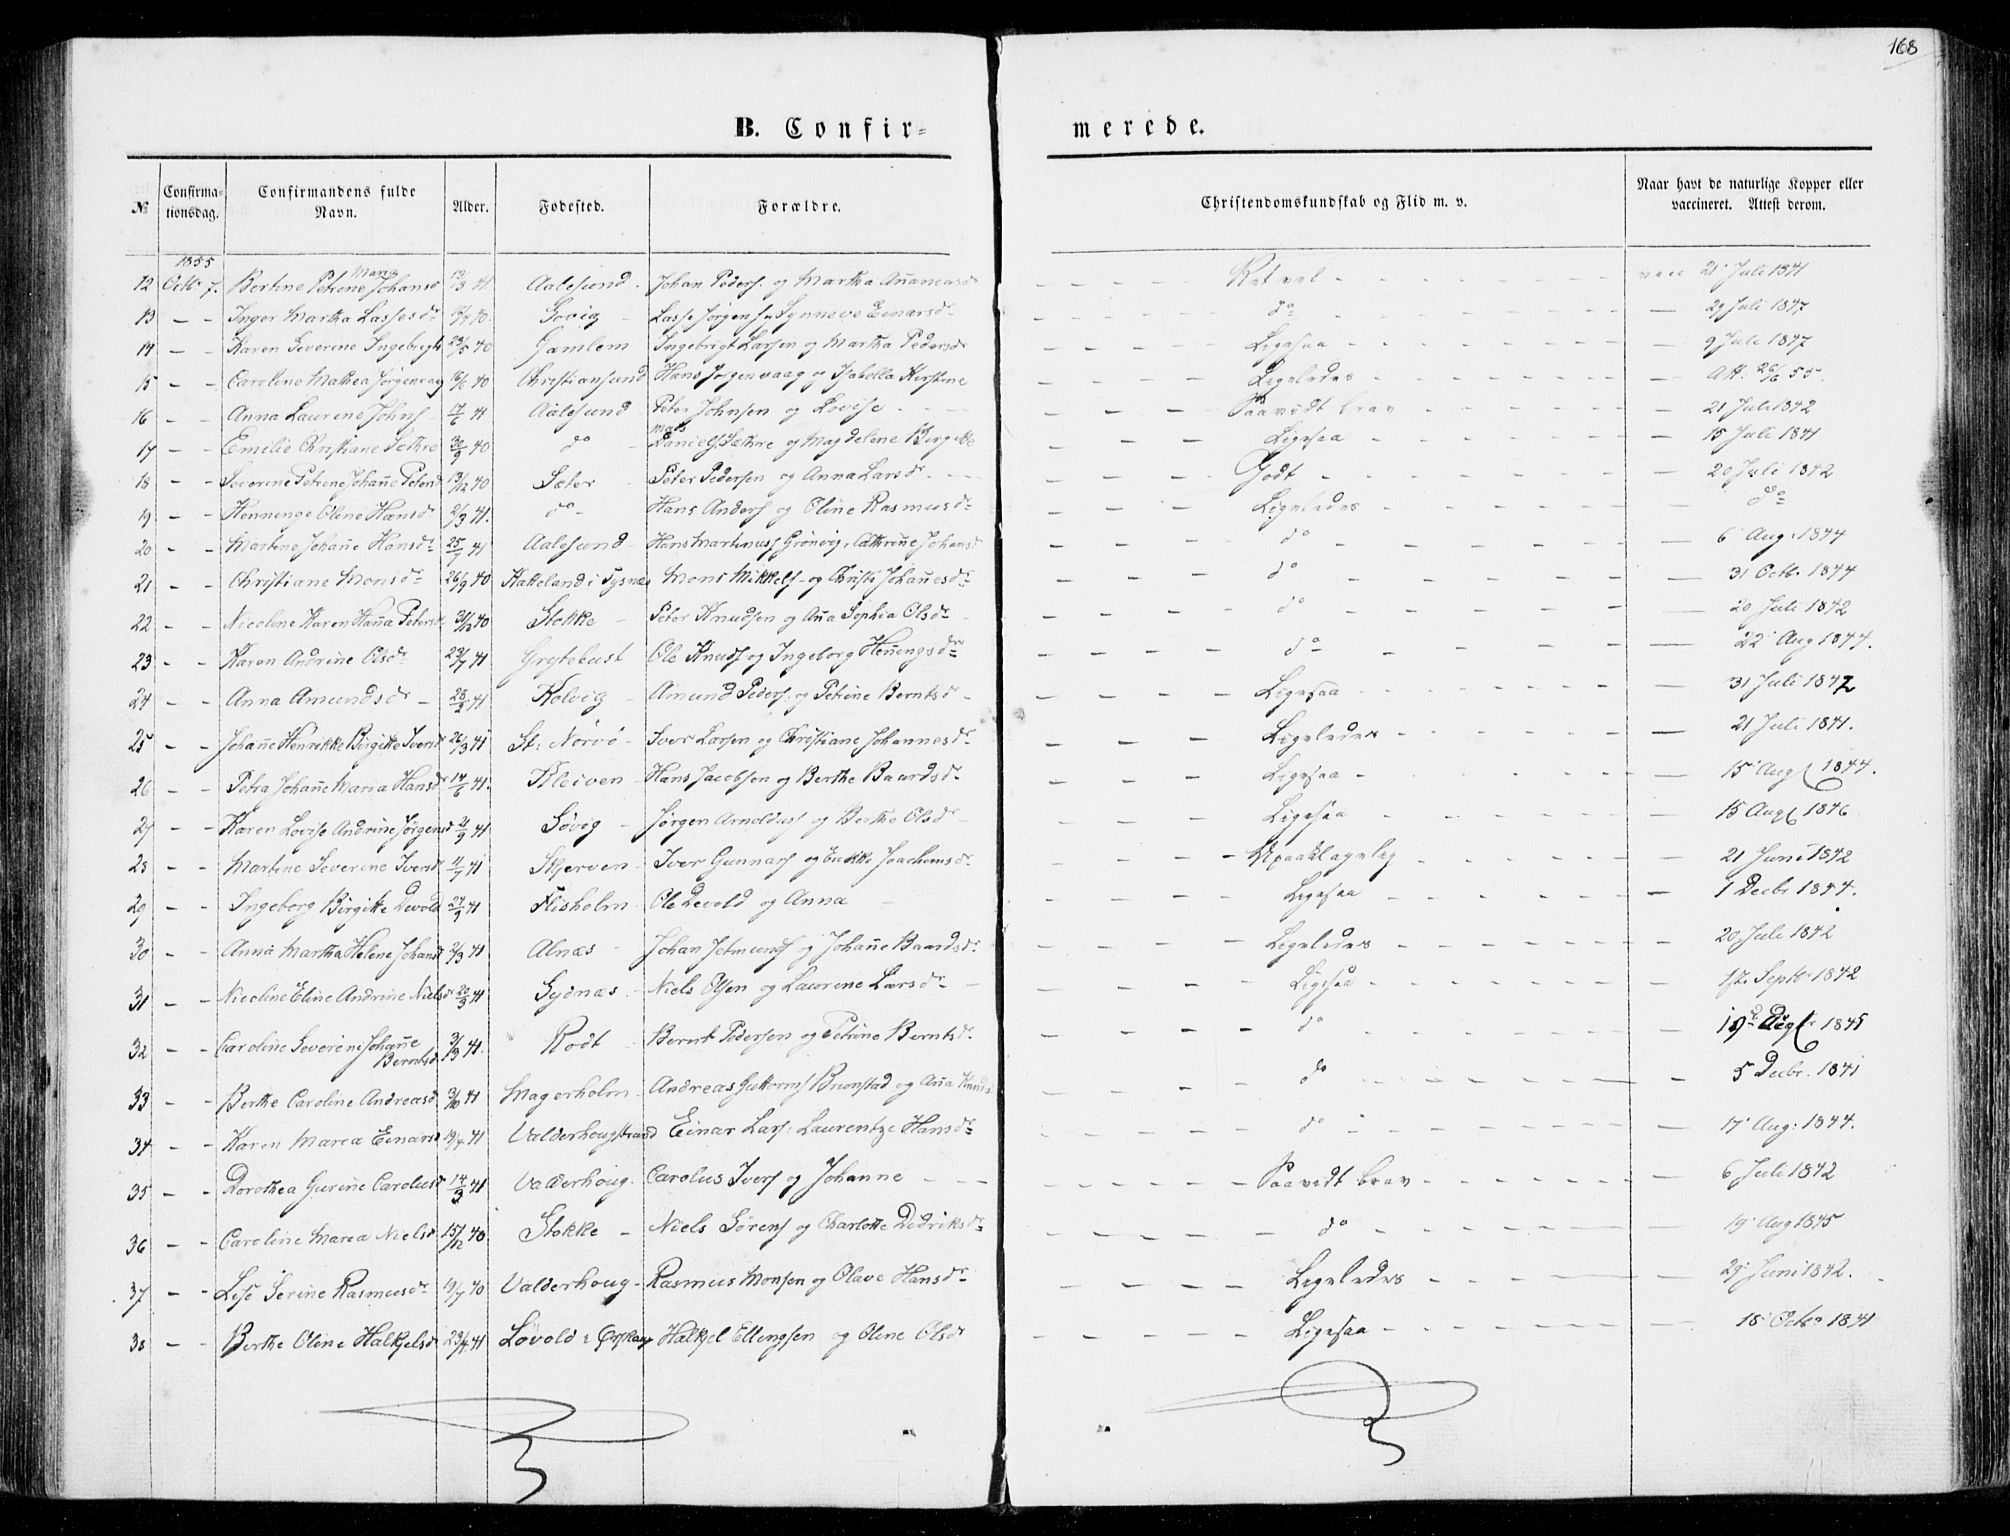 168
B. Confir=merede.
№ Confirmationsdag. Confirmandens fulde Navn. Alder. Fødested. Forældre. Christendomskundskab og Flid m. v. Naar havt de naturlige Kopper eller vaccineret. Attest derom.
1855
Marie
12 Octbr 7. Bertine Petrine Johansd 13/3 41 Aalesund Johan Peders. og Martha Ananiasdr Ret vel 21 Juli 1841
13 - - Inger Martha Lassesdr 40. Lasse Jørgens Synneve Einarsdr do 29 Juli 1847
14 - - Karen Severine Ingebrigts 23/5 40 Gamlem Ingebrigt Larsen og Martha Pedersdr Ligesaa 9 Juli 1847
15 - - Caroline Mathea Jørgenvaag 40 Christiansund Hans Jørgenvaag og Isabella Kirstine Ligeledes Att: 26/6 55.
16 - - Anna Laurine Johns 41 Aalesund Peter Johnsen og Lovise Saavidt brav 21 Juli 1842
17 - - Emilie Christiane Sethre 30/9 40 do Mats Daniels Sæthre og Magdelene Birgitte Ligesaa 15 Juli 1841
18 - - Severine Petrine Johañe Petersd 13/12 40 Sæter Peter Pedersen og Anna Larsdr Godt 20 Juli 1842
19 - - Henninge Oline Hansdr 2/3 41. do Hans Anders og Oline Rasmusdr Ligeledes do
20 - - Martine Johañe Hansdr 25/7 41 Aalesund Hans Martinus Grönvig, Cathrine Johansd do 6 Aug: 1844
21 - - Christiane Monsdr 26/9 40 Hatteland i Tysnæs Mons Mikkels og Christi Johañesdr do 31 Octb. 1844
22 - - Nicoline Karen Haña Petersd 31/12 40 Stokke Peter Knudsen og Aña Sophia Olsdr do 20 Juli 1842
23 - - Karen Andrine Olsdr 23/7 41 Grytebust Ole Knuds og Ingeborg Heñingsdr do 22 Aug 1844.
24 - - Anna Amundsdr 28/2 41 Kolvig Amund Peders. og Petrine Berntsdr Ligesaa 31 Juli 1842
25 - - Johañe Henrikke Birgitte Iversd 26/3 41 St: Nörvö Iver Larsen og Christiane Johannesdr Ligeledes 21 Juli 1841.
26 - - Petra Johañe Maria Hansd 14/6 41. Kleiven Hans Jacobsen og Berthe Baardsdr Ligesaa 15 Aug 1844.
27 - - Karen Lovise Andrine Jørgensd 2/9 41 Søvig Jørgen Arnoldus og Berthe Olsdr Ligesaa 15 Aug 1846
28 - - Martine Severine Iversd 41 Skjerven Iver Gunnars og Jochumsdr Upaaklagelig 21 Juni 1842
29 - - Ingeborg Birgitte Devold 24/9 41 Flisholm Ole Devold og Anna Ligesaa 1 Decbr 1844.
30 - - Anna Martha Helene Johansd 2/3 41 Alnæs Johan Jetmunds og Johañe Baardsdr Ligeledes 20 Juli 1842
31 - - Nicoline Eline Andrine Nielsd 20/3 41 Gydnæs Niels Olsen og Laurine Larsdr Ligesaa 17 Septbr 1842
32 - - Caroline Severine Johañe Berntsd 3/3 41. Rødt Bernt Pedersen og Petrine Berntsdr do 1845
33 - - Berthe Caroline Andreasd 3/10 41 Magerholm Andreas Guttorms Brunstad og Aña Knuds do 5 Decbr. 1841
34 - - Karen Maria Einarsd 19/4 41 Valderhougstrand Einar Lars: Laurentze Hansdr do 17 Aug: 1844.
35 - - Dorothea Gurine Carolusd 14/3 41 Valderhoug. Carolus Ivers og Johanne Saavidt brav 6 Juli 1842
36 - - Caroline Maria Nielsd 15/12 40 Stokke Niels Sörens og Charlotte Dedriksdr do 19 Aug 1845
37 - - Lise Serine Rasmusdr 19/7 40 Valderhoug Rasmus Monsen og Olave Hansdr Ligeledes 29 Juni 1842.
38 - - Berthe Oline Halkjelsd 23/4 41 Lövold i Ørskoug Halkjel Ellingsen og Oline Olsdr Ligesaa 18 Octbr 1841